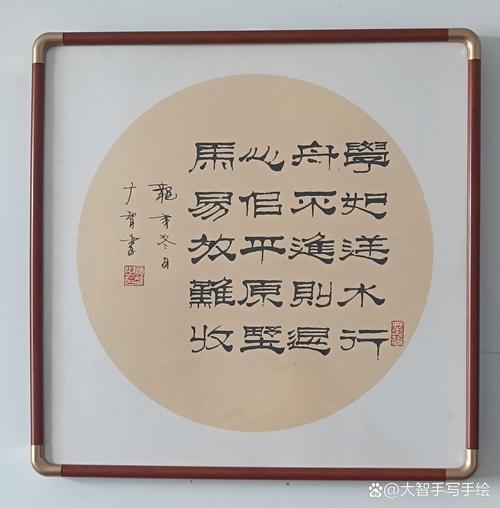 學如逆水行
舟不進則退
心佀平原
馬易放難收
龍年冬日
大智書
大智手写手绘